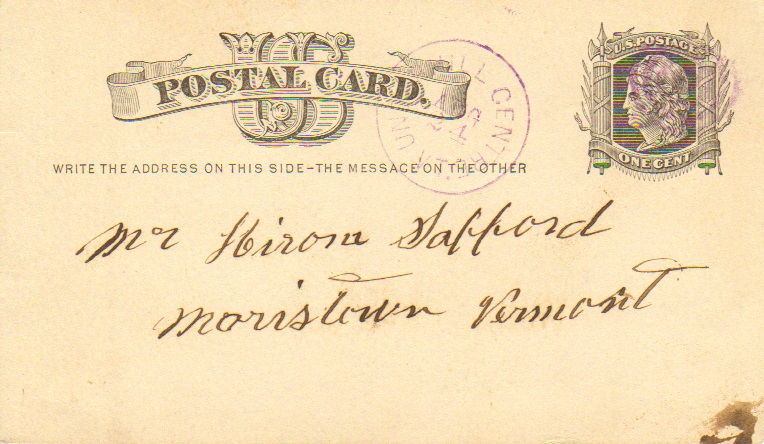 US
POSTAL CARD.
U.S. POSTAGE
ONE CENT
WRITE THE ADDRESS ON THIS SIDE–THE MESSAGE ON THE OTHER
Mr Hirom Safford
Moristown Vermont